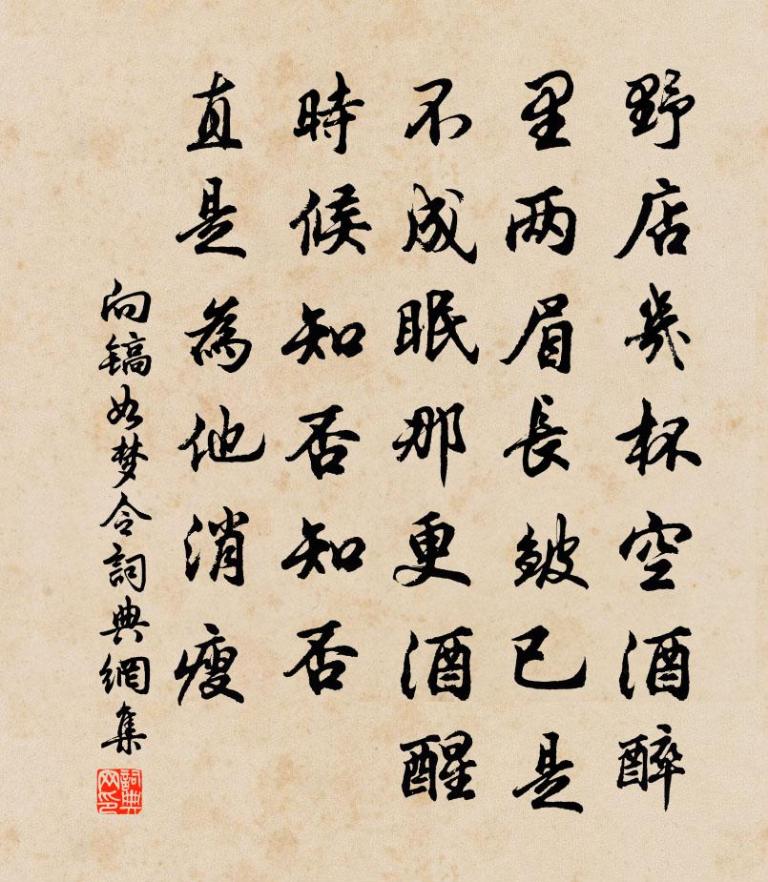 野店幾杯空酒醉
里两眉長皺已是
不成眠那更酒醒
時候知否知否
直是為他消瘦
向镐如梦令詞典網集
詞典网印